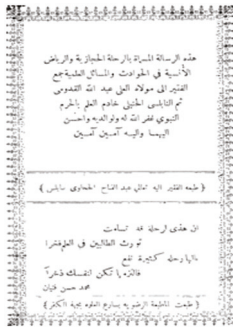 هذه الرسالة المسماة بالرحلة الحجازية والرياض
الأنسية في الحوادث والمسائل العلمية جمع
الفقير الى مولاه العلي عبد الله القدومي
ثم النابلسي الحنبلي خادم العلم بالحرم
النبوي غفر الله له ولوالديه واحسن
اليهما واليه آمين آمين
طبعه الفقير اليه تعالى عبد الفتاح الحجاوي بنابلس
ان هذى لرحلة قد تسامت
تورث الطالبين في العلم فخرا
يالها رحلة كثيرة نفع
فالتزمها تكن لنفسك ذخرا
محمد حسن
طبعت بالمطبعة